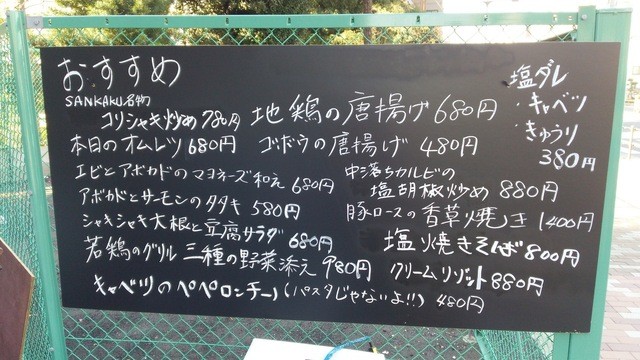 おすすめ
SANKAKU名物
コリシャキ炒め 780円
本日のオムレツ 680円
エビとアボカドのマヨネーズ和え 680円
アボカドとサーモンのタタキ 580円
シャキシャキ大根と豆腐サラダ 680円
若鶏のグリル 三種の野菜添え 980円
キャベツのペペロンチーノ(パスタじゃないよ!!) 480円
地鶏の唐揚げ 680円
ゴボウの唐揚げ 480円
中落ちカルビの
塩胡椒炒め 880円
豚ロースの香草焼き 1400円
塩焼きそば 800円
クリームリゾット 880円
塩ダレ
・キャベツ
・きゅうり
380円